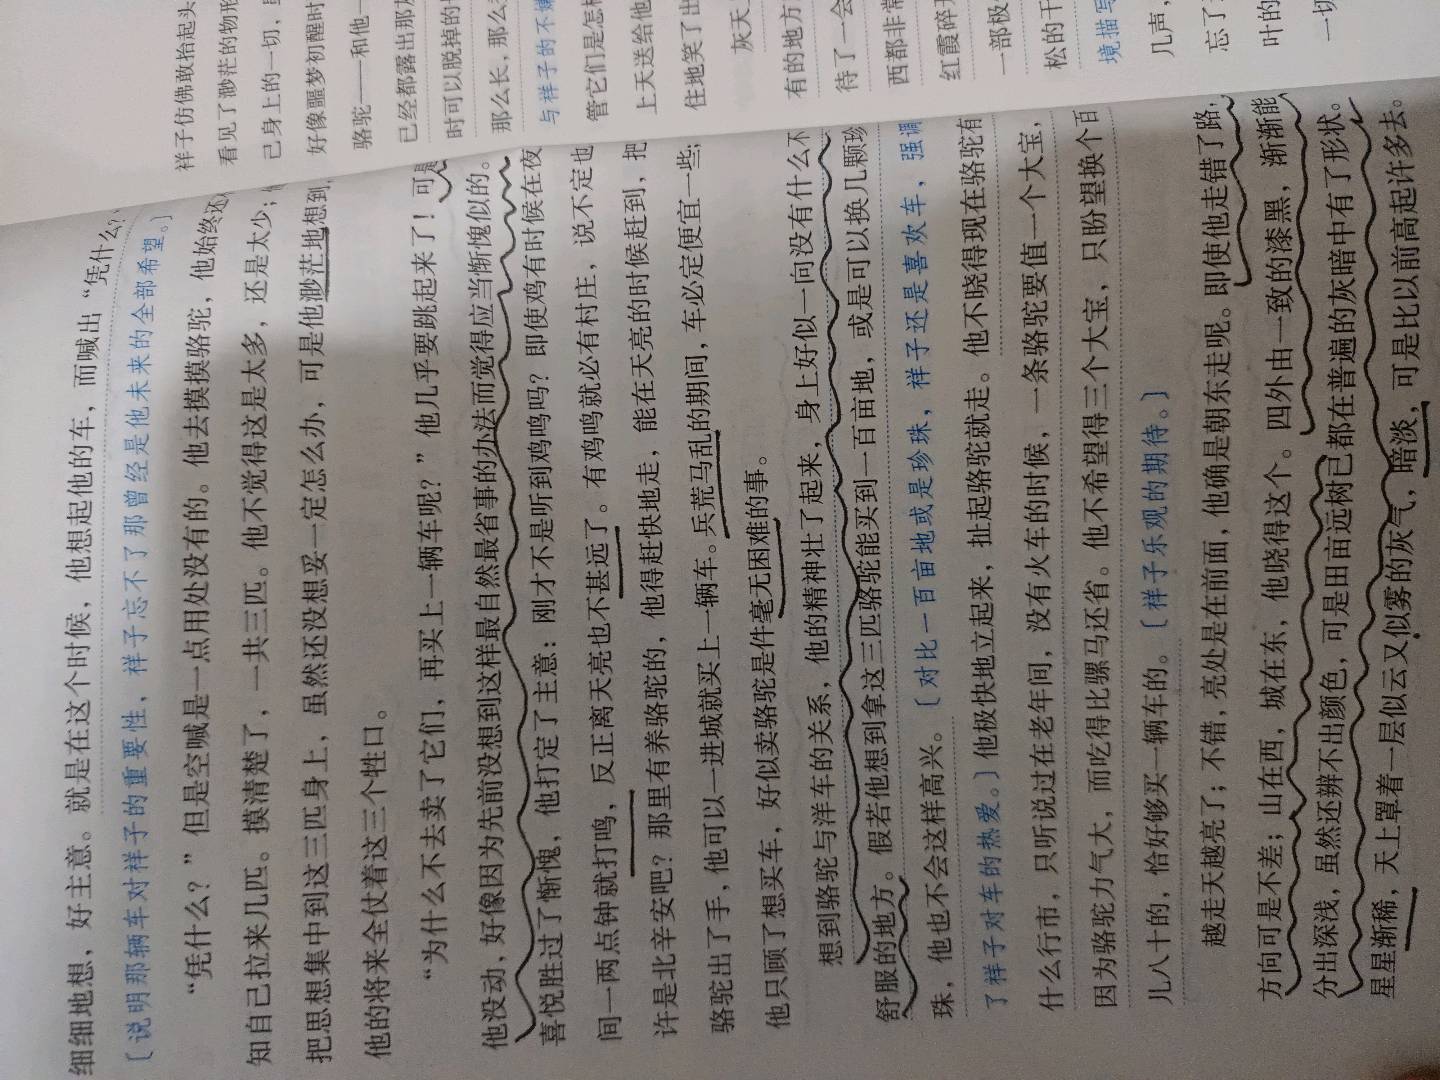 细细地想，好主意。就是在这个时候，他想起他的车，而喊出“凭什么？
〔说明那辆车对祥子的重要性，祥子忘不了那曾经是他未来的全部希望。〕
“凭什么？”但是空喊是一点用处没有的。他去摸摸骆驼，他始终还
知自己拉来几匹。摸清楚了，一共三匹。他不觉得这是太多，还是太少；
把思想集中到这三匹身上，虽然还没想妥一定怎么办，可是他渺茫地想到，
他的将来全仗着这三个牲口。
“为什么不去卖了它们，再买上一辆车呢？”他几乎要跳起来了！可是
他没动，好像因为先前没想到这样最自然最省事的办法而觉得应当惭愧似的。
喜悦胜过了惭愧，他打定了主意：刚才不是听到鸡鸣吗？即使鸡有时候在夜
间一两点钟就打鸣，反正离天亮也不甚远了。有鸡鸣就必有村庄，说不定也
许是北辛安吧？那里有养骆驼的，他得赶快地走，能在天亮的时候赶到，把
骆驼出了手，他可以一进城就买上一辆车。兵荒马乱的期间，车必定便宜一些；
他只顾了想买车，好似卖骆驼是件毫无困难的事。
想到骆驼与洋车的关系，他的精神壮了起来，身上好似一向没有什么不
舒服的地方。假若他想到拿这三匹骆驼能买到一百亩地，或是可以换几颗珍
珠，他也不会这样高兴。〔对比一百亩地或是珍珠，祥子还是喜欢车，强调
了祥子对车的热爱。〕他极快地立起来，扯起骆驼就走。他不晓得现在骆驼有
什么行市，只听说过在老年间，没有火车的时候，一条骆驼要值一个大宝，
因为骆驼力气大，而吃得比骡马还省。他不希望得三个大宝，只盼望换个百
儿八十的，恰好够买一辆车的。〔祥子乐观的期待。〕
越走天越亮了；不错，亮处是在前面，他确是朝东走呢。即使他走错了路，
方向可是不差；山在西，城在东，他晓得这个。四外由一致的漆黑，渐渐能
分出深浅，虽然还辨不出颜色，可是田亩远树已都在普遍的灰暗中有了形状。
星星渐稀，天上罩着一层似云又似雾的灰气，暗淡，可是比以前高起许多去。
祥子仿佛敢抬起头
看见了渺茫的物形
己身上的一切，
好像噩梦初醒时
骆驼——和他一
已经都露出那
时可以脱掉的
那么长，那么
与祥子的不嫌
管它们是怎样
上天送给他
住地笑了出
灰天
有的地方
待了一会
西都非常
红霞碎开
一部极
松的干
境描写
几声，
忘了
叶的
一切